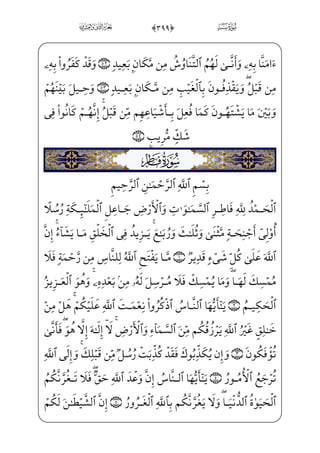 ﴿٣٩٩﴾
ءَامَنَّا بِهِۦ وَأَنَّىٰ لَهُمُ ٱلتَّنَاوُشُ مِن مَّكَانٍۭ بَعِيدٍ ۝٥٢ وَقَدْ كَفَرُوا۟ بِهِۦ
مِن قَبْلُ ۖ وَيَقْذِفُونَ بِٱلْغَيْبِ مِن مَّكَانٍۭ بَعِيدٍ ۝٥٣ وَحِيلَ بَيْنَهُمْ
وَبَيْنَ مَا يَشْتَهُونَ كَمَا فُعِلَ بِأَشْيَاعِهِم مِّن قَبْلُ ۚ إِنَّهُمْ كَانُوا۟ فِى
شَكٍّ مُّرِيبٍۭ ۝٥٤
سُورَةُ فَاطِرٍ
بِسْمِ ٱللَّهِ ٱلرَّحْمَـٰنِ ٱلرَّحِيمِ
ٱلْحَمْدُ لِلَّهِ فَاطِرِ ٱلسَّمَـٰوَٰتِ وَٱلْأَرْضِ جَاعِلِ ٱلْمَلَـٰٓئِكَةِ رُسُلًا
أُو۟لِىٓ أَجْنِحَةٍ مَّثْنَىٰ وَثُلَـٰثَ وَرُبَـٰعَ ۚ يَزِيدُ فِى ٱلْخَلْقِ مَا يَشَآءُ ۚ إِنَّ
ٱللَّهَ عَلَىٰ كُلِّ شَىْءٍ قَدِيرٌ ۝١ مَّا يَفْتَحِ ٱللَّهُ لِلنَّاسِ مِن رَّحْمَةٍ فَلَا
مُمْسِكَ لَهَا ۖ وَمَا يُمْسِكْ فَلَا مُرْسِلَ لَهُۥ مِنۢ بَعْدِهِۦ ۚ وَهُوَ ٱلْعَزِيزُ
ٱلْحَكِيمُ ۝٢ يَـٰٓأَيُّهَا ٱلنَّاسُ ٱذْكُرُوا۟ نِعْمَتَ ٱللَّهِ عَلَيْكُمْ ۚ هَلْ مِنْ
خَـٰلِقٍ غَيْرُ ٱللَّهِ يَرْزُقُكُم مِّنَ ٱلسَّمَآءِ وَٱلْأَرْضِ ۚ لَآ إِلَـٰهَ إِلَّا هُوَ ۖ فَأَنَّىٰ
تُؤْفَكُونَ ۝٣ وَإِن يُكَذِّبُوكَ فَقَدْ كُذِّبَتْ رُسُلٌ مِّن قَبْلِكَ ۚ وَإِلَى ٱللَّهِ
تُرْجَعُ ٱلْأُمُورُ ۝٤ يَـٰٓأَيُّهَا ٱلنَّاسُ إِنَّ وَعْدَ ٱللَّهِ حَقٌّ ۖ فَلَا تَغُرَّنَّكُمُ
ٱلْحَيَوٰةُ ٱلدُّنْيَا ۖ وَلَا يَغُرَّنَّكُم بِٱللَّهِ ٱلْغَرُورُ ۝٥ إِنَّ ٱلشَّيْطَـٰنَ لَكُمْ